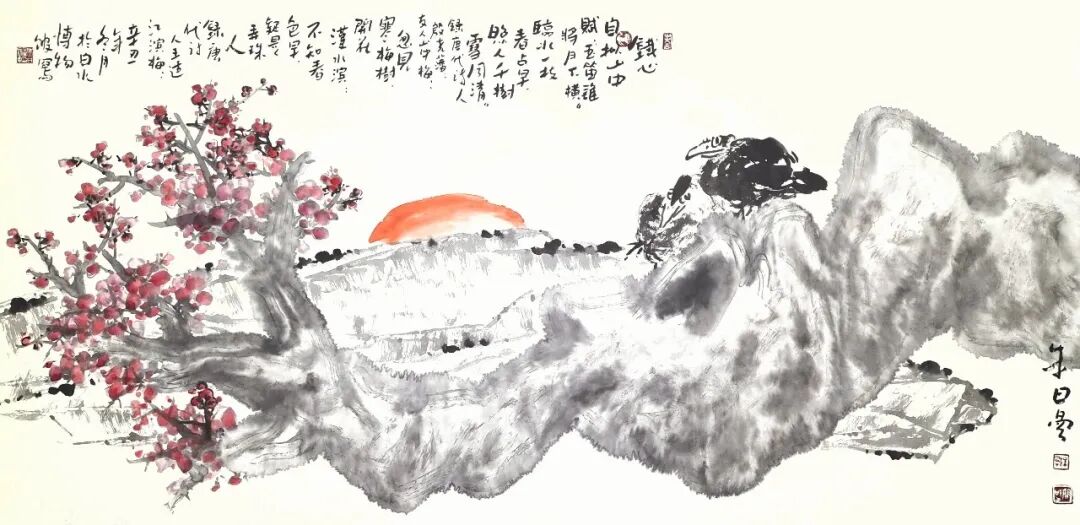 鐵心
自擬山中
賦玉笛誰
將月下橫。
臨水一枝
春占早
照人千樹
雪同清。
錄唐代诗人
殷堯藩
友人山中梅，
忽見
寒梅樹，
開花
漢水濱，
不知春
色早，
疑是
弄珠
人
錄唐
代诗
人王适
江滨梅，
辛丑
年
冬月
於白水
博物
寫